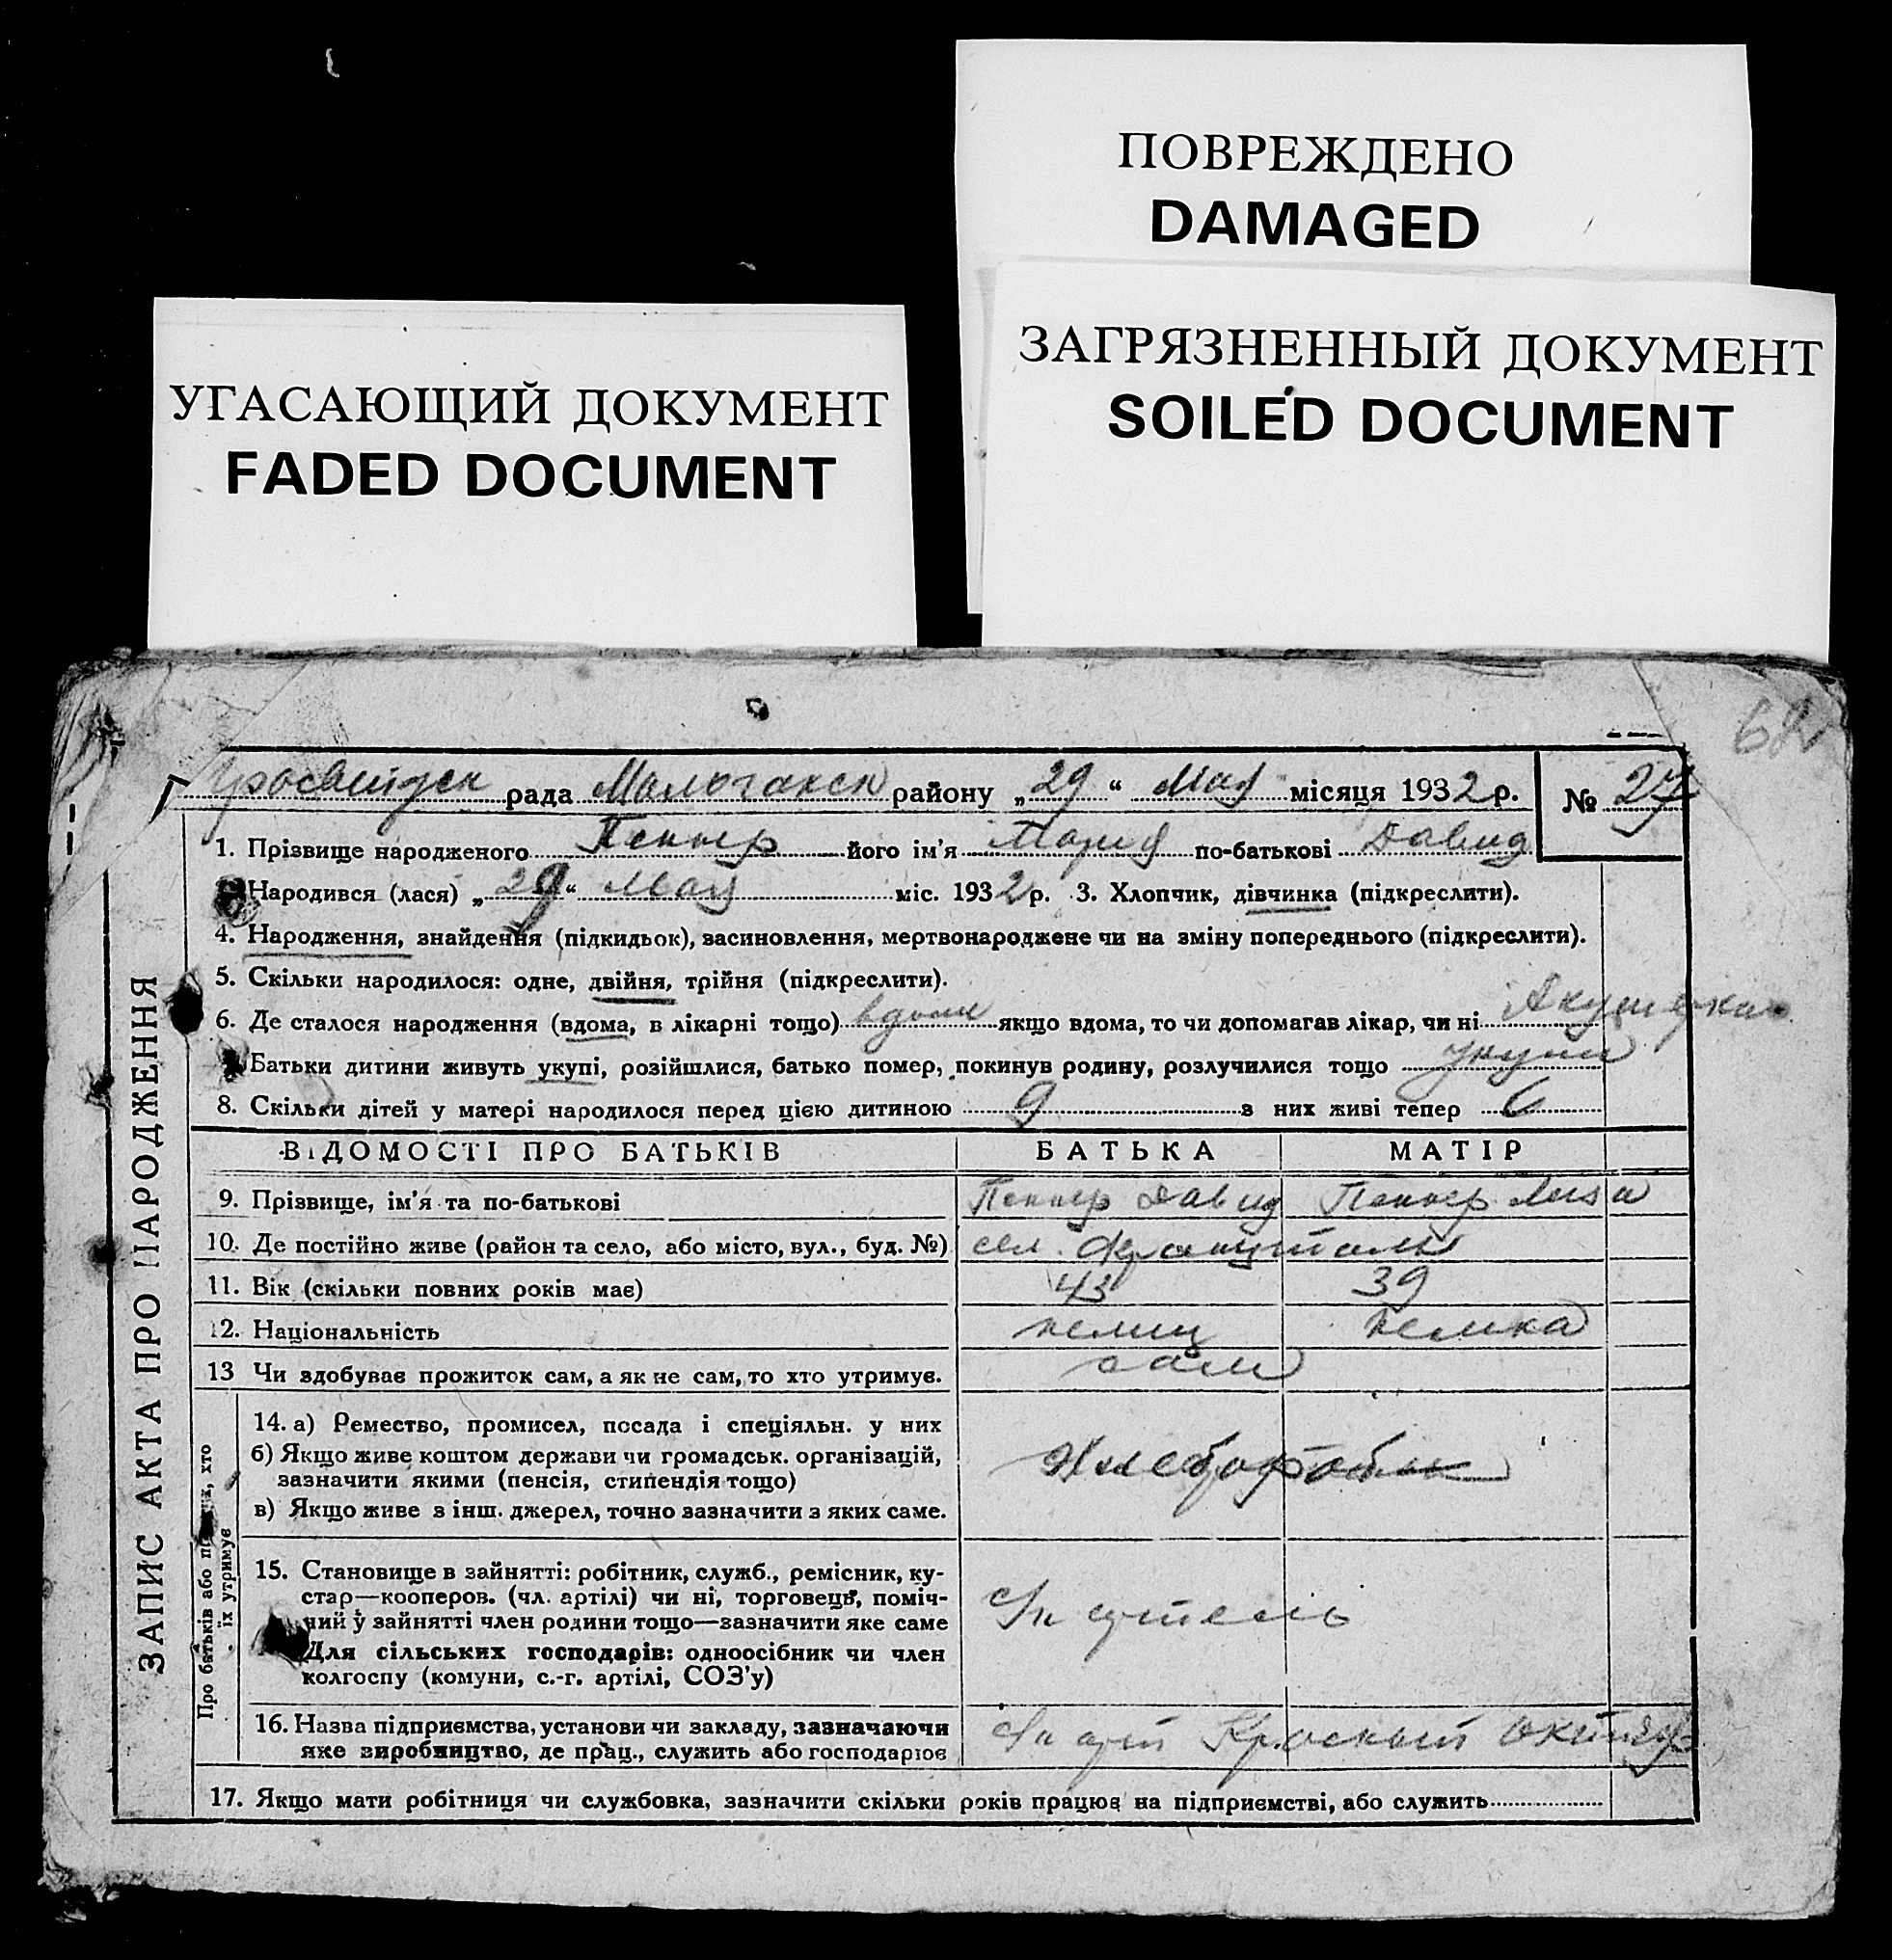 ПОВРЕЖДЕНО
DAMAGED
ЗАГРЯЗНЕННЫЙ ДОКУМЕНТ
SOILED DOCUMENT
УГАСАЮЩИЙ ДОКУМЕНТ
FADED DOCUMENT
рада Молочанск району „29“ Мая місяця 1932 р. № 27
1. Прізвище народженого Пеннер його ім'я Мария по-батькові Давид
Народився (лася) „29“ Мая міс. 1932 р. 3. Хлопчик, дівчинка (підкреслити).
4. Народження, знайдення (підкидьок), засиновлення, мертвонароджене чи на зміну попереднього (підкреслити).
5. Скільки народилося: одне, двійня, трійня (підкреслити).
6. Де сталося народження (вдома, в лікарні тощо) вдома якщо вдома, то чи допомагав лікар, чи ні Акушерка
Батьки дитини живуть укупі, розійшлися, батько помер, покинув родину, розлучилися тощо укупи
8. Скільки дітей у матері народилося перед цією дитиною 9 з них живі тепер 6
ВІДОМОСТІ ПРО БАТЬКІВ БАТЬКА МАТІР
9. Прізвище, ім'я та по-батькові Пеннер Давид Пеннер Лиза
10. Де постійно живе (район та село, або місто, вул., буд. №) сел.
11. Вік (скільки повних років має) 43 39
12. Національність немец немка
13 Чи здобуває прожиток сам, а як не сам, то хто утримує. сам
14. а) Ремество, промисел, посада і спеціяльн. у них
б) Якщо живе коштом держави чи громадськ. організацій,
зазначити якими (пенсія, стипендія тощо)
в) Якщо живе з інш. джерел, точно зазначити з яких саме.
Хлебороб
15. Становище в зайнятті: робітник, служб., ремісник, ку-
стар—кооперов. (чл. артілі) чи ні, торговець, поміч-
ний у зайнятті член родини тощо—зазначити яке саме
Для сільських господарів: одноосібник чи член
колгоспу (комуни, с.-г. артілі, СОЗ'у)
16. Назва підприємства, установи чи закладу, зазначаючи
яке виробництво, де прац., служить або господарює
Красный Октябр
17. Якщо мати робітниця чи службовка, зазначити скільки років працює на підприємстві, або служить
ЗАПИС АКТА ПРО НАРОДЖЕННЯ
Про батьків або хто
їх утримує